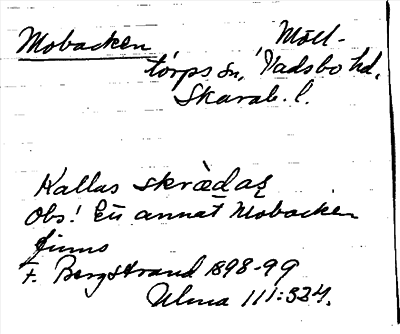 Mobacken Möll-
torps sn, Vadsbo hd,
Skarab. l.
Kallas skrädaʒ
Obs! Ett annat Mobacken
finns
F. Bergstrand 1898-99
Ulma 111:324.